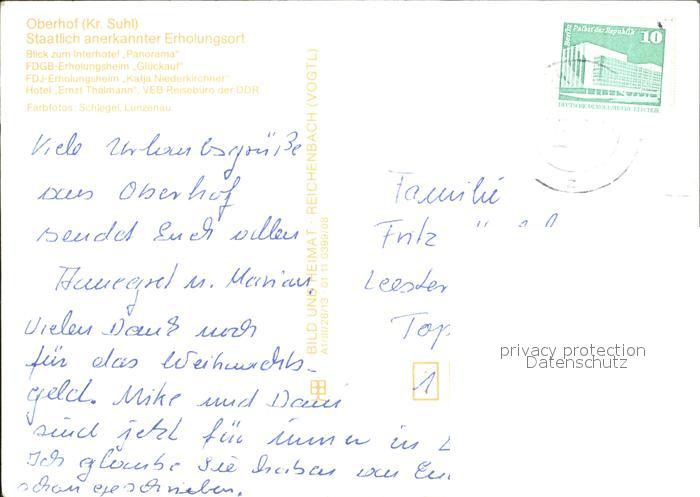 Oberhof (Kr. Suhl)
Staatlich anerkannter Erholungsort
Blick zum Interhotel „Panorama“
FDGB-Erholungsheim „Glückauf“
FDJ-Erholungsheim „Katja Niederkirchner“
Hotel „Ernst Thälmann“, VEB Reisebüro der DDR
Farbfotos: Schlegel, Lunzenau
Berlin Palast der Republik
10
DEUTSCHE DEMOKRATISCHE REPUBLIK
BILD UND HEIMAT · REICHENBACH (VOGTL)
A1/III/26/13 01 11 0399/08
Viele Urlaubsgrüße
aus Oberhof
sendet Euch allen
Annegret u. Marian.
Vielen Dank noch
für das Weihnachts-
geld. Mike und Dani
sind jetzt für immer in
Ich glaube sie haben an
schon geschrieben.
Familie
Fritz
Leester
Top
1
privacy protection
Datenschutz